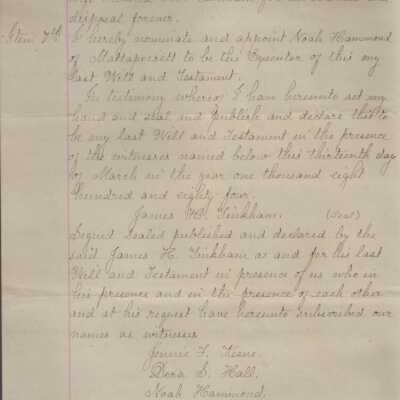 disposal forever.
Item 7th I hereby nominate and appoint Noah Hammond
of Mattapoisett to be the Executor of this my
last Will and Testament.
In testimony whereof I have hereunto set my
hand and seal and publish and declare this to
be my last Will and Testament in the presence
of the witnesses named below this thirteenth day
of March in the year one thousand eight
hundred and eighty four.
James H. Tinkham. (Seal)
Signed sealed published and declared by the
said James H. Tinkham as and for his last
Will and Testament in presence of us who in
his presence and in the presence of each other
and at his request have hereunto subscribed our
names as witnesses
Jennie F. Keene.
Dora S. Hall.
Noah Hammond.